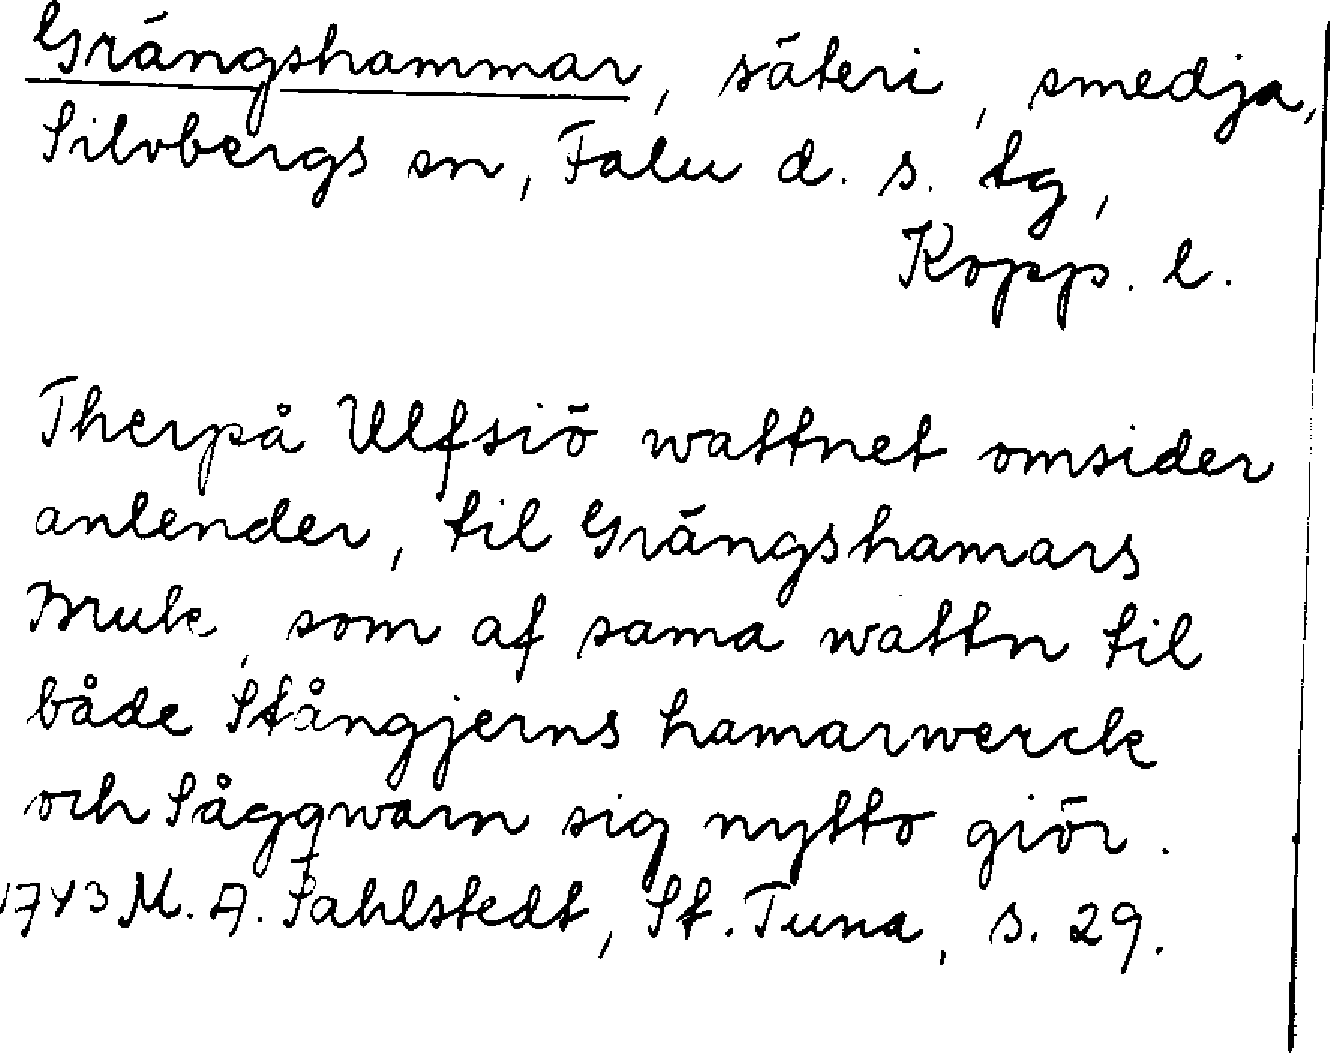 Grängshammar, säteri, smedja,
Silvbergs sn, Falu d. s. tg,
Kopp. l.
Therpå Ulfsiö wattnet omsider
anlender, til Grängshamars
Bruk, som af sama wattn til
både Stångjerns hamarwerck
och Sågqwarn sig nytto giör.
1743 M. A. Sahlstedt, St. Tuna, s. 29.